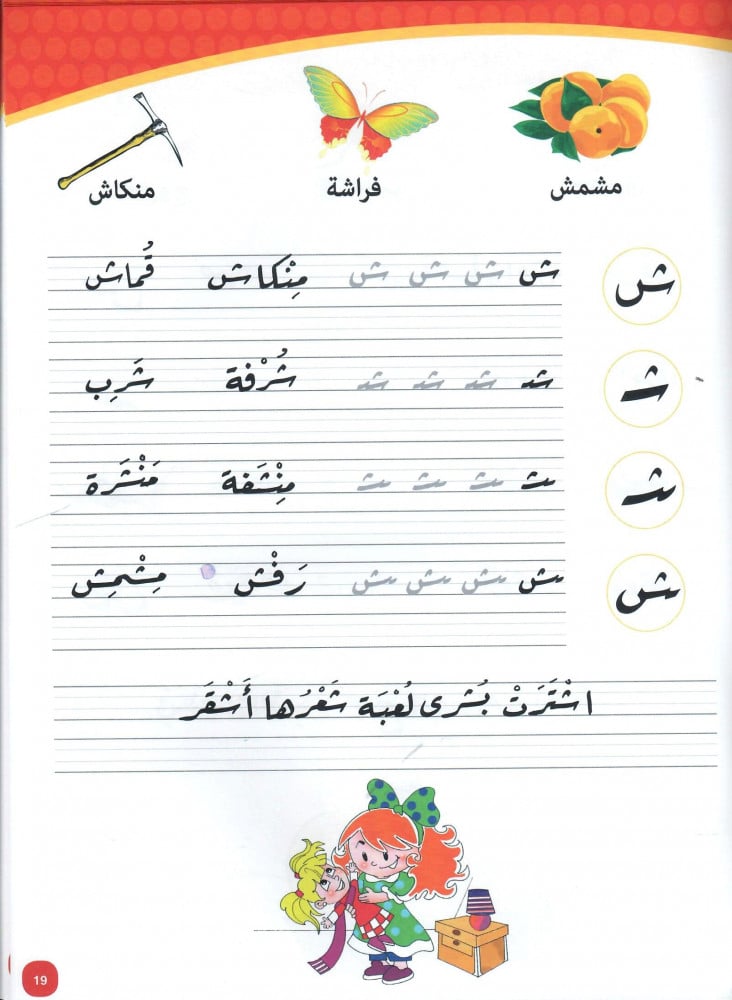 مشمش فراشة منكاش
ش ش ش ش ش مِنْكاش قُماش
شـ شـ شـ شـ شـ شُرْفة شَرِب
ـشـ ـشـ ـشـ ـشـ ـشـ مِنْشَفة مَنْشَرة
ـش ـش ـش ـش ـش رَفْش مِشْمِش
اشْتَرَتْ بُشرى لُعْبَة شَعْرُها أَشْقَر
19